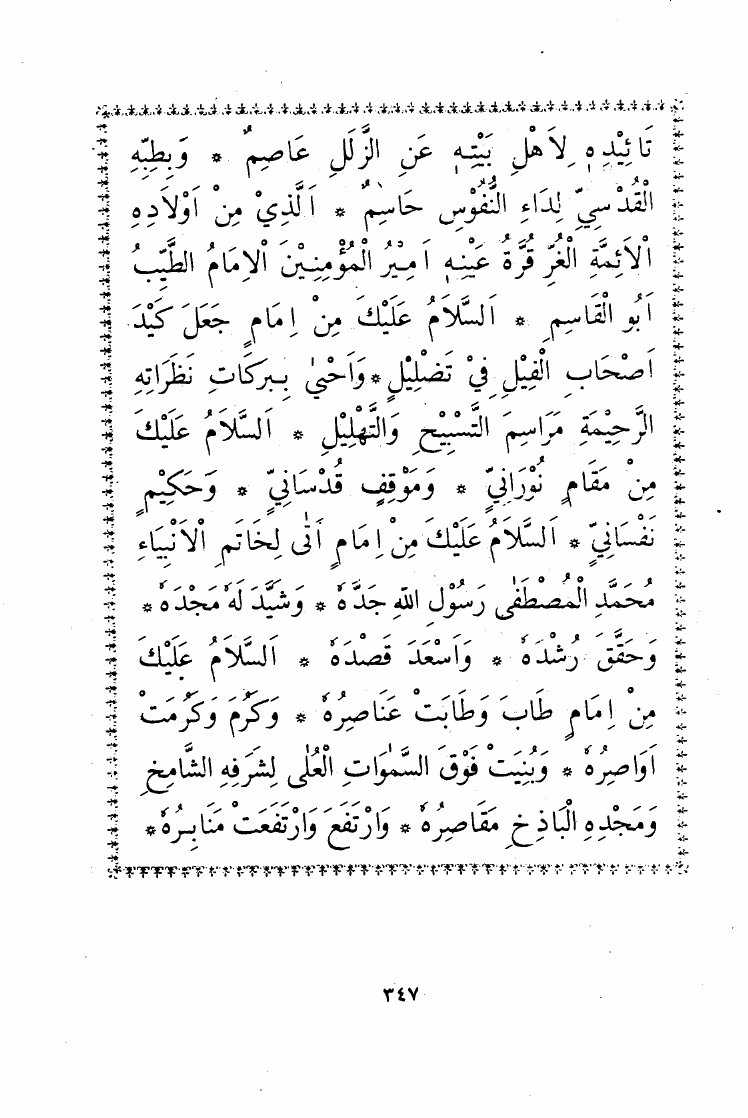 تَائِيْدِهٖ لِاَهْلِ بَيْتِهٖ عَنِ الزَّلَلِ عَاصِمٌ * وَبِطِبِّهِ
الْقُدْسِيِّ لِدَاءِ النُّفُوْسِ حَاسِمٌ * اَلَّذِيْ مِنْ اَوْلَادِهِ
الْاَئِمَّةِ الْغُرِّ قُرَّةُ عَيْنِهٖ اَمِيْرُ الْمُؤْمِنِيْنَ الْاِمَامُ الطَّيِّبُ
اَبُو الْقَاسِمِ * اَلسَّلَامُ عَلَيْكَ مِنْ اِمَامٍ جَعَلَ كَيْدَ
اَصْحَابِ الْفِيْلِ فِيْ تَضْلِيْلٍ * وَاَحْيٰى بِبَرَكَاتِ نَظَرَاتِهِ
الرَّحِيْمَةِ مَرَاسِمَ التَّسْبِيْحِ وَالتَّهْلِيْلِ * اَلسَّلَامُ عَلَيْكَ
مِنْ مَقَامٍ نُوْرَانِيٍّ * وَمَوْقِفٍ قُدْسَانِيٍّ * وَحَكِيْمٍ
نَفْسَانِيٍّ * اَلسَّلَامُ عَلَيْكَ مِنْ اِمَامٍ اَتٰى لِخَاتَمِ الْاَنْبِيَاءِ
مُحَمَّدِ الْمُصْطَفٰى رَسُوْلِ اللهِ جَدَّهٗ * وَشَيَّدَ لَهٗ مَجْدَهٗ *
وَحَقَّقَ رُشْدَهٗ * وَاَسْعَدَ قَصْدَهٗ * اَلسَّلَامُ عَلَيْكَ
مِنْ اِمَامٍ طَابَ وَطَابَتْ عَنَاصِرُهٗ * وَكَرُمَ وَكَرُمَتْ
اَوَاصِرُهٗ * وَبُنِيَتْ فَوْقَ السَّمٰوَاتِ الْعُلٰى لِشَرَفِهِ الشَّامِخِ
وَمَجْدِهِ الْبَاذِخِ مَقَاصِرُهٗ * وَارْتَفَعَ وَارْتَفَعَتْ مَنَابِرُهٗ *
٣٤٧